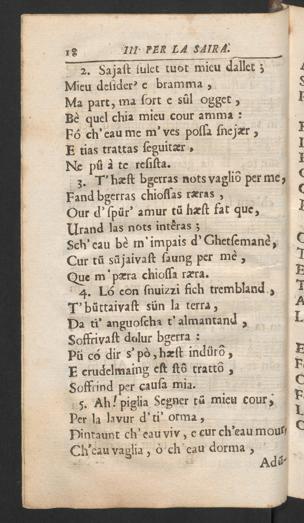 18 III. PER LA SAIRA.
2. Sajast sulet tuot mieu dallet ;
Mieu desider' e bramma ,
Ma part, ma sort e sûl ogget ,
Bè quel chia mieu cour amma :
Fó ch'eau me m'ves possa snejær ,
E tias trattas seguitær ,
Ne pſü à te resista.
3. T'hæst bgerras nots vagliô per me ,
Fand bgerras chiossas ræras ,
Our d'spür' amur tü hæst fat que ,
Urand las nots intêras ;
Sch'eau bè m'impais d'Ghetsemanè ,
Cur tü süjaivast saung per mè ,
Que m'pæra chiossa ræra.
4. Ló con snuizzi sich trembland ,
T'büttaivast sün la terra ,
Da ti' anguoscha t'almantand ,
Soffrivast dolur bgerra :
Pü có dir s'pò, hæst indürô ,
E crudelmaing est stô trattô ,
Soffrind per causa mia.
5. Ah! piglia Segner tü mieu cour ,
Per la lavur d'ti' orma ,
Dintaunt ch'eau viv , e cur ch'eau mour
Ch'eau vaglia , ò ch'eau dorma ,
Adü-